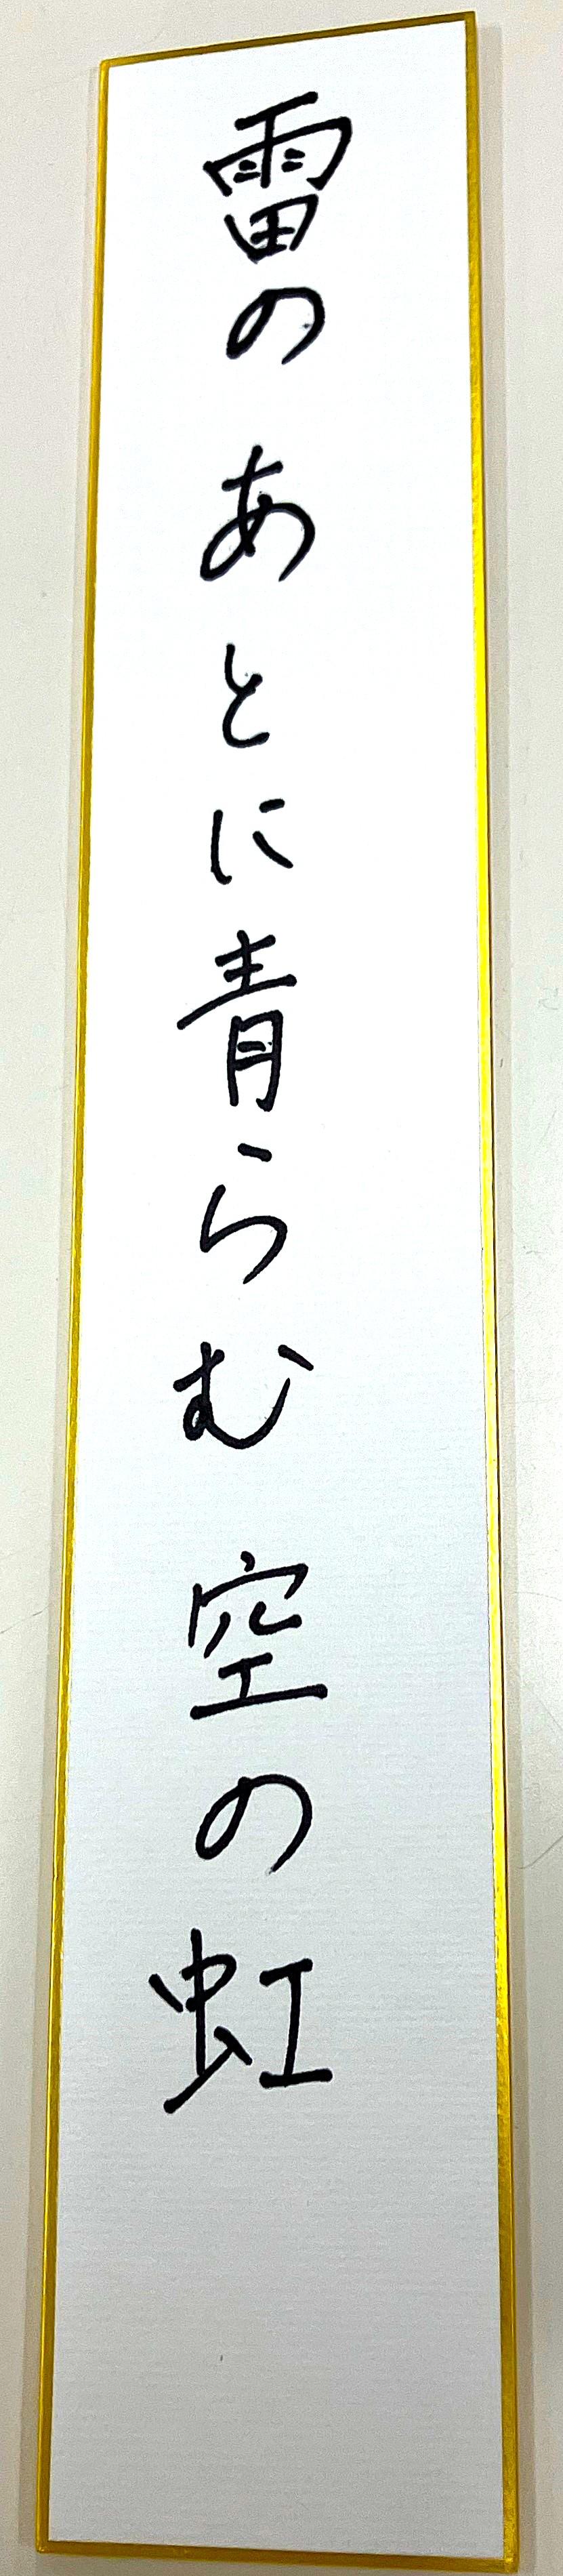 雷の あとに青らむ 空の虹